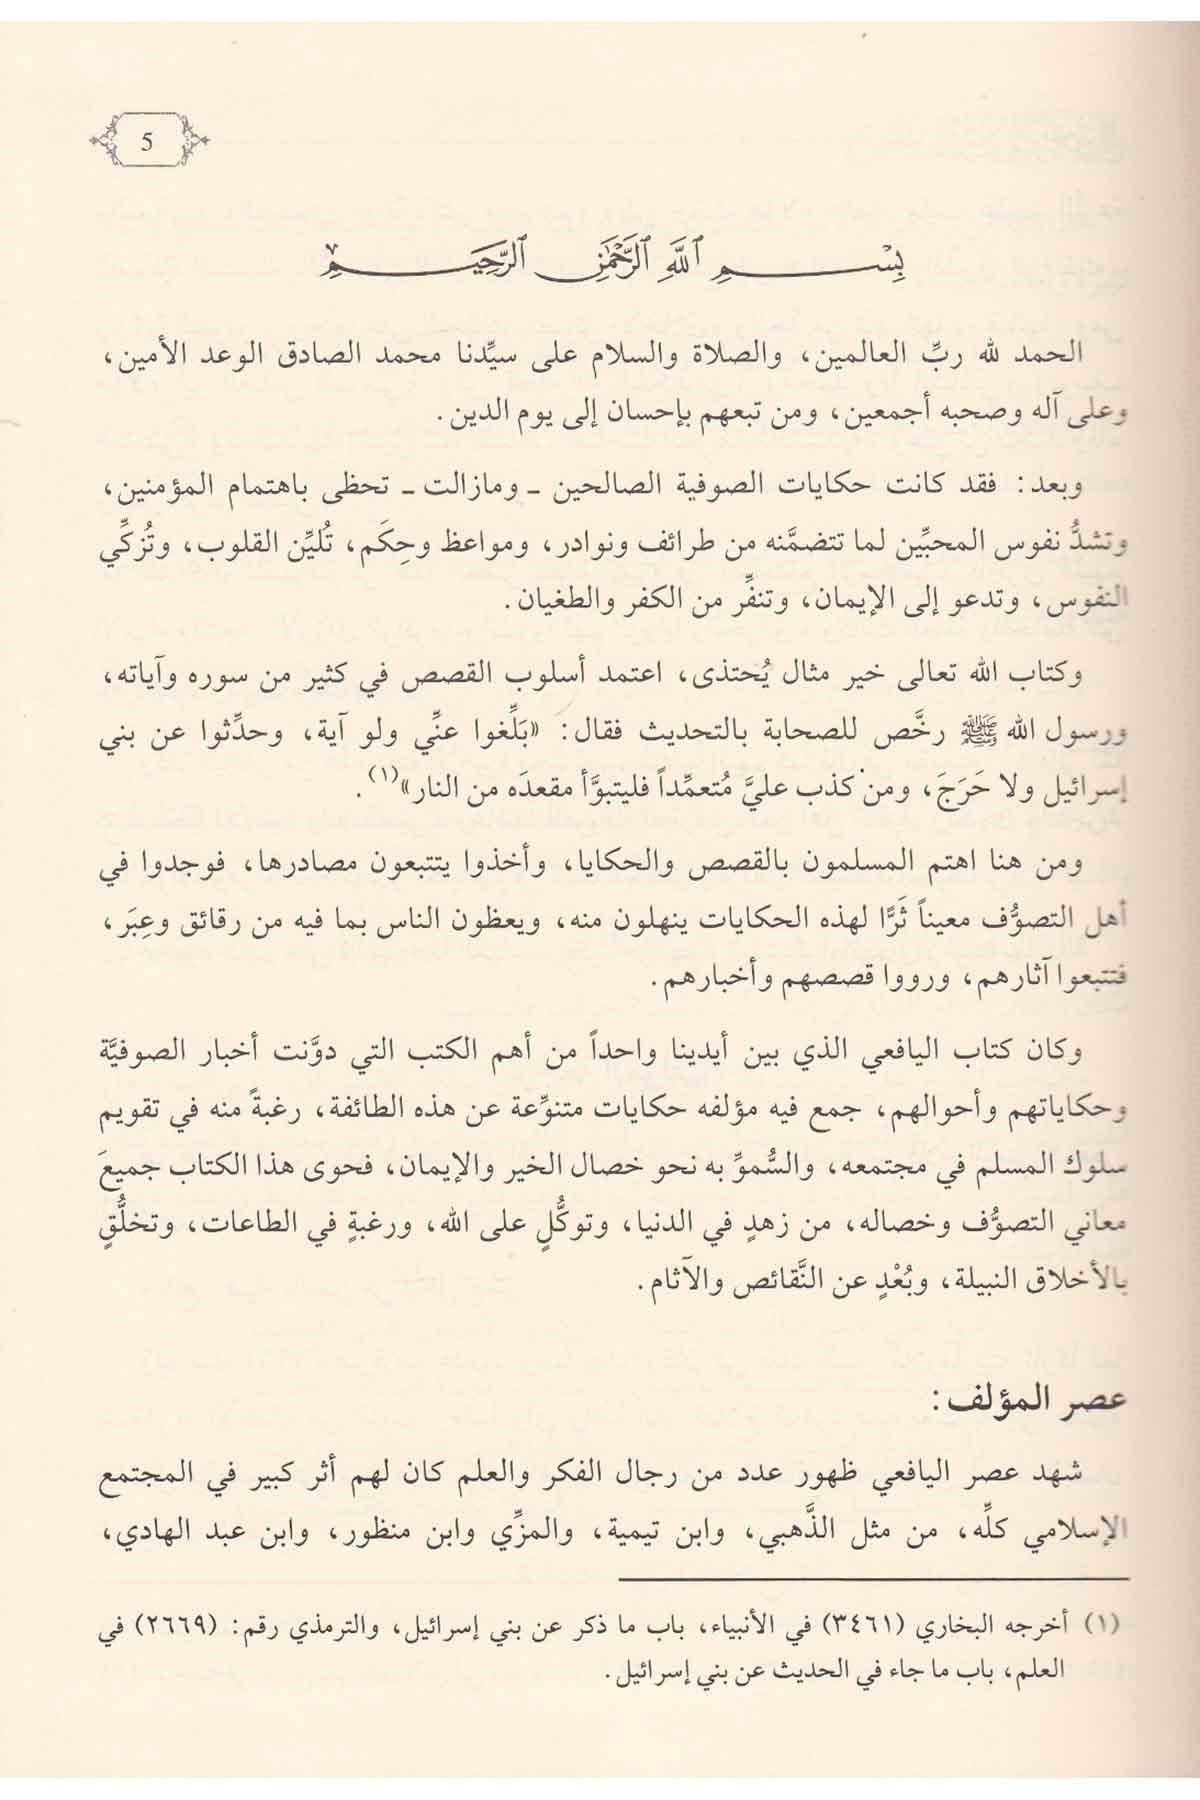 5
بِسْمِ ٱللَّهِ ٱلرَّحْمَٰنِ ٱلرَّحِيمِ
الحمد لله ربِّ العالمين، والصلاة والسلام على سيِّدنا محمد الصادق الوعد الأمين،
وعلى آله وصحبه أجمعين، ومن تبعهم بإحسان إلى يوم الدين.
وبعد: فقد كانت حكايات الصوفية الصالحين ـ ومازالت ـ تحظى باهتمام المؤمنين،
وتشدُّ نفوس المحبِّين لما تتضمَّنه من طرائف ونوادر، ومواعظ وحِكَم، تُليِّن القلوب، وتُزكِّي
النفوس، وتدعو إلى الإيمان، وتنفِّر من الكفر والطغيان.
وكتاب الله تعالى خير مثال يُحتذى، اعتمد أسلوب القصص في كثير من سوره وآياته،
ورسول الله ﷺ رخَّص للصحابة بالتحديث فقال: «بَلِّغوا عنِّي ولو آية، وحدِّثوا عن بني
إسرائيل ولا حَرَجَ، ومن كذب عليَّ مُتعمِّداً فليتبوَّأ مقعدَه من النار»(١).
ومن هنا اهتم المسلمون بالقصص والحكايا، وأخذوا يتتبعون مصادرها، فوجدوا في
أهل التصوُّف معيناً ثَرًّا لهذه الحكايات ينهلون منه، ويعظون الناس بما فيه من رقائق وعِبَر،
فتتبعوا آثارهم، ورووا قصصهم وأخبارهم.
وكان كتاب اليافعي الذي بين أيدينا واحداً من أهم الكتب التي دوَّنت أخبار الصوفيَّة
وحكاياتهم وأحوالهم، جمع فيه مؤلفه حكايات متنوِّعة عن هذه الطائفة، رغبةً منه في تقويم
سلوك المسلم في مجتمعه، والسُّموِّ به نحو خصال الخير والإيمان، فحوى هذا الكتاب جميعَ
معاني التصوُّف وخصاله، من زهدٍ في الدنيا، وتوكُّلٍ على الله، ورغبةٍ في الطاعات، وتخلُّقٍ
بالأخلاق النبيلة، وبُعْدٍ عن النَّقائص والآثام.
عصر المؤلف:
شهد عصر اليافعي ظهور عدد من رجال الفكر والعلم كان لهم أثر كبير في المجتمع
الإسلامي كلِّه، من مثل الذَّهبي، وابن تيمية، والمزِّي وابن منظور، وابن عبد الهادي،
(١) أخرجه البخاري (٣٤٦١) في الأنبياء، باب ما ذكر عن بني إسرائيل، والترمذي رقم: (٢٦٦٩) في
العلم، باب ما جاء في الحديث عن بني إسرائيل.